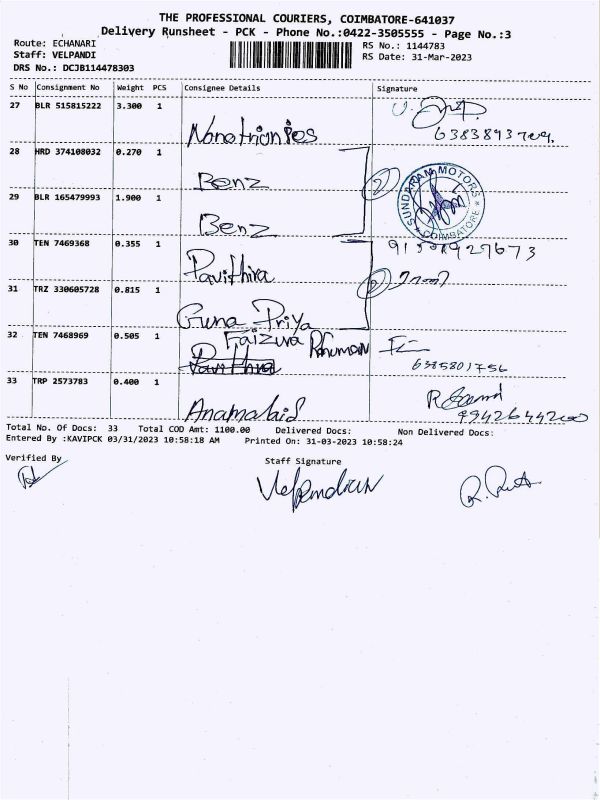 THE PROFESSIONAL COURIERS, COIMBATORE-641037
Delivery Runsheet - PCK - Phone No.:0422-3505555 - Page No.:3
Route: ECHANARI
Staff: VELPANDI
DRS No.: DCJB114478303
RS No.: 1144783
RS Date: 31-Mar-2023
S No Consignment No Weight PCS Consignee Details Signature
27 BLR 515815222 3.300 1
28 HRD 374108032 0.270 1
Benz
SUNDARAM MOTORS
COIMBATORE
29 BLR 165479993 1.900 1
Benz
30 TEN 7469368 0.355 1
Pavithra
31 TRZ 330605728 0.815 1
Guna Priya
32 TEN 7468969 0.505 1
Faizura Rhuman
6385801756
33 TRP 2573783 0.400 1
Total No. Of Docs: 33 Total COD Amt: 1100.00 Delivered Docs: Non Delivered Docs:
Entered By :KAVIPCK 03/31/2023 10:58:18 AM Printed On: 31-03-2023 10:58:24
Verified By Staff Signature